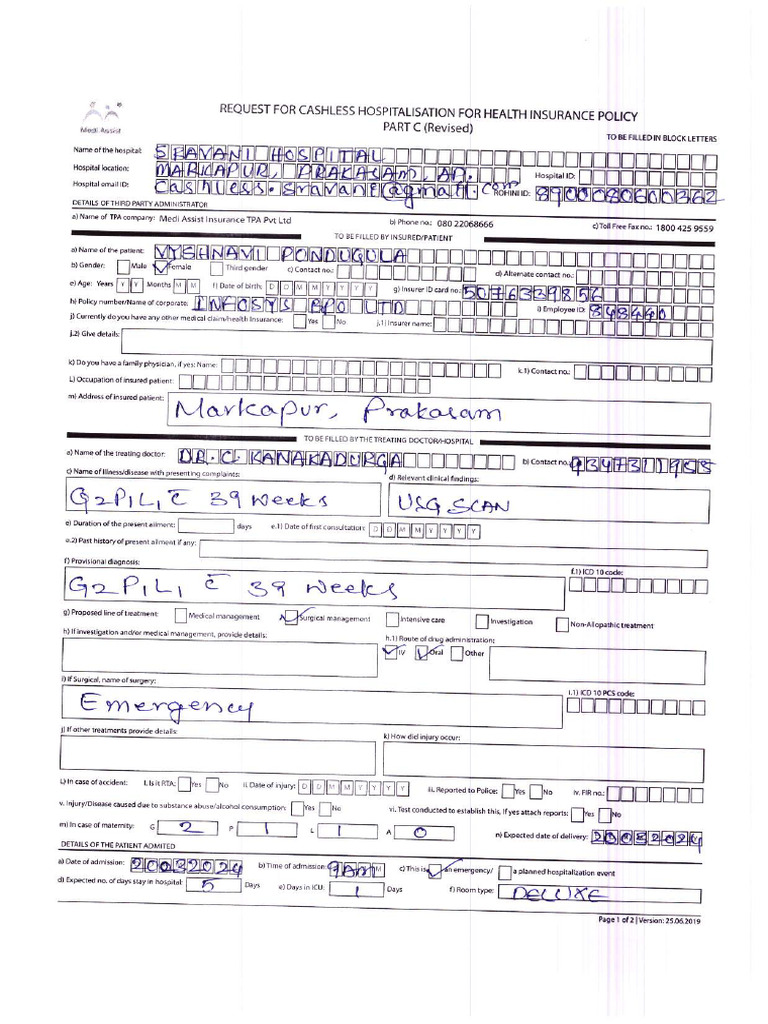 Medi Assist
REQUEST FOR CASHLESS HOSPITALISATION FOR HEALTH INSURANCE POLICY
PART C (Revised)
TO BE FILLED IN BLOCK LETTERS
Name of the hospital: SRAVANI HOSPITAL
Hospital location: MARKAPUR, PRAKASAM, AP. Hospital ID:
Hospital email ID: Cashless.sravani@gmail.com ROHINI ID: 8900080600362
DETAILS OF THIRD PARTY ADMINISTRATOR
a) Name of TPA company: Medi Assist Insurance TPA Pvt Ltd b) Phone no.: 080 22068666 c) Toll Free Fax no.: 1800 425 9559
TO BE FILLED BY INSURED/PATIENT
a) Name of the patient: VYSHNAVI PONDUGULA
b) Gender: Male Female Third gender c) Contact no.: d) Alternate contact no.:
e) Age: Years Y Y Months M M f) Date of birth: D D M M Y Y Y Y g) Insurer ID card no.: 5076329856
h) Policy number/Name of corporate: INFOSYS BPO LTD i) Employee ID: 848440
j) Currently do you have any other medical claim/health Insurance: Yes No j.1) Insurer name:
j.2) Give details:
k) Do you have a family physician, if yes: Name: k.1) Contact no.:
L) Occupation of insured patient:
m) Address of insured patient: Markapur, Prakasam
TO BE FILLED BY THE TREATING DOCTOR/HOSPITAL
a) Name of the treating doctor: DR.C. KANAKADURGA b) Contact no. 9347311955
c) Name of Illness/disease with presenting complaints: d) Relevant clinical findings:
G2P1L1 c̄ 39 weeks USG SCAN
e) Duration of the present ailment: days e.1) Date of first consultation: D D M M Y Y Y Y
e.2) Past history of present ailment if any:
f) Provisional diagnosis: f.1) ICD 10 code:
G2P1L1 c̄ 39 weeks
g) Proposed line of treatment: Medical management Surgical management Intensive care Investigation Non-Allopathic treatment
h) If investigation and/or medical management, provide details: h.1) Route of drug administration:
IV Oral Other
i) If Surgical, name of surgery: i.1) ICD 10 PCS code:
Emergency
j) If other treatments provide details: k) How did injury occur:
L) In case of accident: i. Is it RTA: Yes No ii. Date of injury: D D M M Y Y Y Y iii. Reported to Police: Yes No iv. FIR no.:
v. Injury/Disease caused due to substance abuse/alcohol consumption: Yes No vi. Test conducted to establish this, If yes attach reports: Yes No
m) In case of maternity: G 2 P 1 L 1 A 0 n) Expected date of delivery: 20032024
DETAILS OF THE PATIENT ADMITED
a) Date of admission: 20032024 b) Time of admission: 9AM M c) This is an emergency/ a planned hospitalization event
d) Expected no. of days stay in hospital: 5 Days e) Days in ICU: 1 Days f) Room type: DELUXE
Page 1 of 2 | Version: 25.06.2019